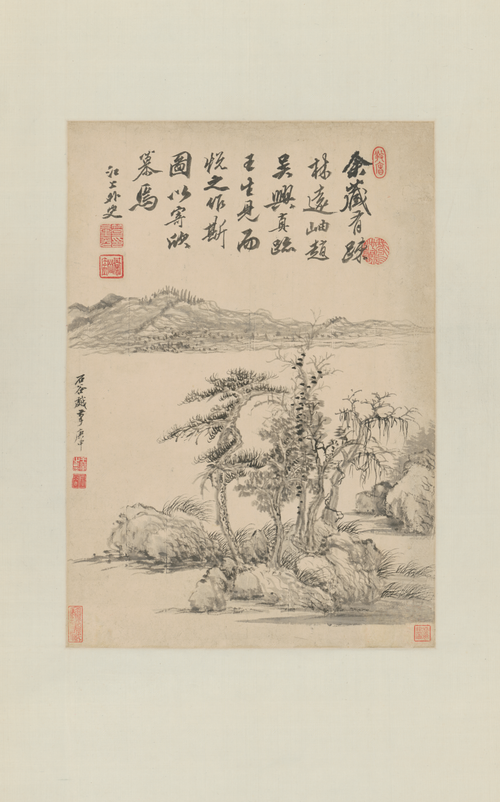 余藏有疎
林遠岫趙
吳興真跡
王生見而
悦之作斯
圖以寄欣
慕焉
江上外史
石谷戲筆庚申